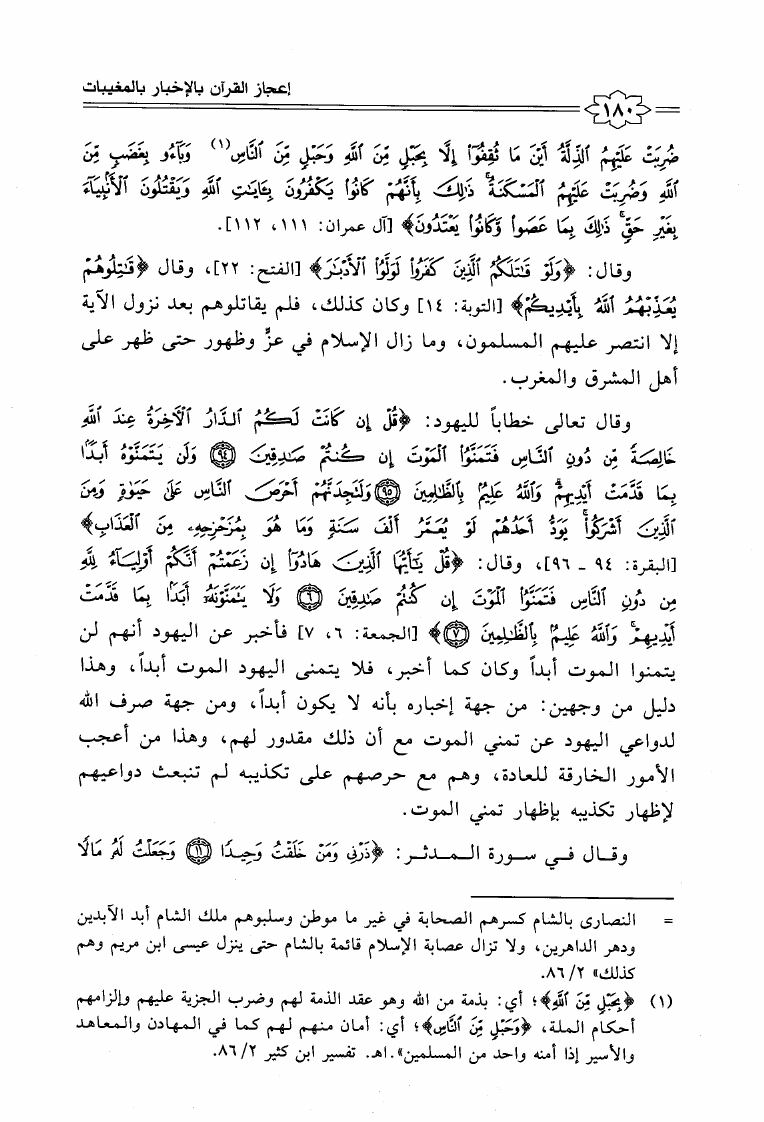 إعجاز القرآن بالإخبار بالمغيبات
١٨٠
ضُرِبَتْ عَلَيْهِمُ ٱلذِّلَّةُ أَيْنَ مَا ثُقِفُوٓا۟ إِلَّا بِحَبْلٍ مِّنَ ٱللَّهِ وَحَبْلٍ مِّنَ ٱلنَّاسِ(١) وَبَآءُو بِغَضَبٍ مِّنَ
ٱللَّهِ وَضُرِبَتْ عَلَيْهِمُ ٱلْمَسْكَنَةُ ۚ ذَٰلِكَ بِأَنَّهُمْ كَانُوا۟ يَكْفُرُونَ بِـَٔايَٰتِ ٱللَّهِ وَيَقْتُلُونَ ٱلْأَنۢبِيَآءَ
بِغَيْرِ حَقٍّ ۚ ذَٰلِكَ بِمَا عَصَوا۟ وَّكَانُوا۟ يَعْتَدُونَ﴾ [آل عمران: ١١١، ١١٢].
وقال: ﴿وَلَوْ قَٰتَلَكُمُ ٱلَّذِينَ كَفَرُوا۟ لَوَلَّوُا۟ ٱلْأَدْبَٰرَ﴾ [الفتح: ٢٢]، وقال ﴿قَٰتِلُوهُمْ
يُعَذِّبْهُمُ ٱللَّهُ بِأَيْدِيكُمْ﴾ [التوبة: ١٤] وكان كذلك، فلم يقاتلوهم بعد نزول الآية
إلا انتصر عليهم المسلمون، وما زال الإسلام في عزٍّ وظهور حتى ظهر على
أهل المشرق والمغرب.
وقال تعالى خطاباً لليهود: ﴿قُلْ إِن كَانَتْ لَكُمُ ٱلدَّارُ ٱلْـَٔاخِرَةُ عِندَ ٱللَّهِ
خَالِصَةً مِّن دُونِ ٱلنَّاسِ فَتَمَنَّوُا۟ ٱلْمَوْتَ إِن كُنتُمْ صَٰدِقِينَ ﴿٩٤﴾ وَلَن يَتَمَنَّوْهُ أَبَدًۢا
بِمَا قَدَّمَتْ أَيْدِيهِمْ ۗ وَٱللَّهُ عَلِيمٌۢ بِٱلظَّٰلِمِينَ ﴿٩٥﴾ وَلَتَجِدَنَّهُمْ أَحْرَصَ ٱلنَّاسِ عَلَىٰ حَيَوٰةٍ وَمِنَ
ٱلَّذِينَ أَشْرَكُوا۟ ۚ يَوَدُّ أَحَدُهُمْ لَوْ يُعَمَّرُ أَلْفَ سَنَةٍ وَمَا هُوَ بِمُزَحْزِحِهِۦ مِنَ ٱلْعَذَابِ﴾
[البقرة: ٩٤ - ٩٦]، وقال: ﴿قُلْ يَٰٓأَيُّهَا ٱلَّذِينَ هَادُوٓا۟ إِن زَعَمْتُمْ أَنَّكُمْ أَوْلِيَآءُ لِلَّهِ
مِن دُونِ ٱلنَّاسِ فَتَمَنَّوُا۟ ٱلْمَوْتَ إِن كُنتُمْ صَٰدِقِينَ ﴿٦﴾ وَلَا يَتَمَنَّوْنَهُۥٓ أَبَدًۢا بِمَا قَدَّمَتْ
أَيْدِيهِمْ ۚ وَٱللَّهُ عَلِيمٌۢ بِٱلظَّٰلِمِينَ ﴿٧﴾﴾ [الجمعة: ٦، ٧] فأخبر عن اليهود أنهم لن
يتمنوا الموت أبداً وكان كما أخبر، فلا يتمنى اليهود الموت أبداً، وهذا
دليل من وجهين: من جهة إخباره بأنه لا يكون أبداً، ومن جهة صرف الله
لدواعي اليهود عن تمني الموت مع أن ذلك مقدور لهم، وهذا من أعجب
الأمور الخارقة للعادة، وهم مع حرصهم على تكذيبه لم تنبعث دواعيهم
لإظهار تكذيبه بإظهار تمني الموت.
وقال في سورة المدثر: ﴿ذَرْنِى وَمَنْ خَلَقْتُ وَحِيدًا ﴿١١﴾ وَجَعَلْتُ لَهُۥ مَالًا
= النصارى بالشام كسرهم الصحابة في غير ما موطن وسلبوهم ملك الشام أبد الآبدين
ودهر الداهرين، ولا تزال عصابة الإسلام قائمة بالشام حتى ينزل عيسى ابن مريم وهم
كذلك» ٢/ ٨٦.
(١) ﴿بِحَبْلٍ مِّنَ ٱللَّهِ﴾؛ أي: بذمة من الله وهو عقد الذمة لهم وضرب الجزية عليهم وإلزامهم
أحكام الملة، ﴿وَحَبْلٍ مِّنَ ٱلنَّاسِ﴾؛ أي: أمان منهم لهم كما في المهادن والمعاهد
والأسير إذا أمنه واحد من المسلمين».اهـ. تفسير ابن كثير ٢/ ٨٦.